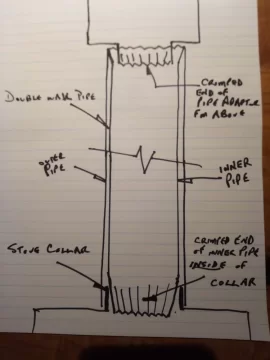 CRIMPED
END OF
PIPE ADAPTER
FM ABOVE
DOUBLE WALL PIPE
OUTER
PIPE
INNER
PIPE
STOVE COLLAR
CRIMPED END
OF INNER PIPE
INSIDE OF
COLLAR